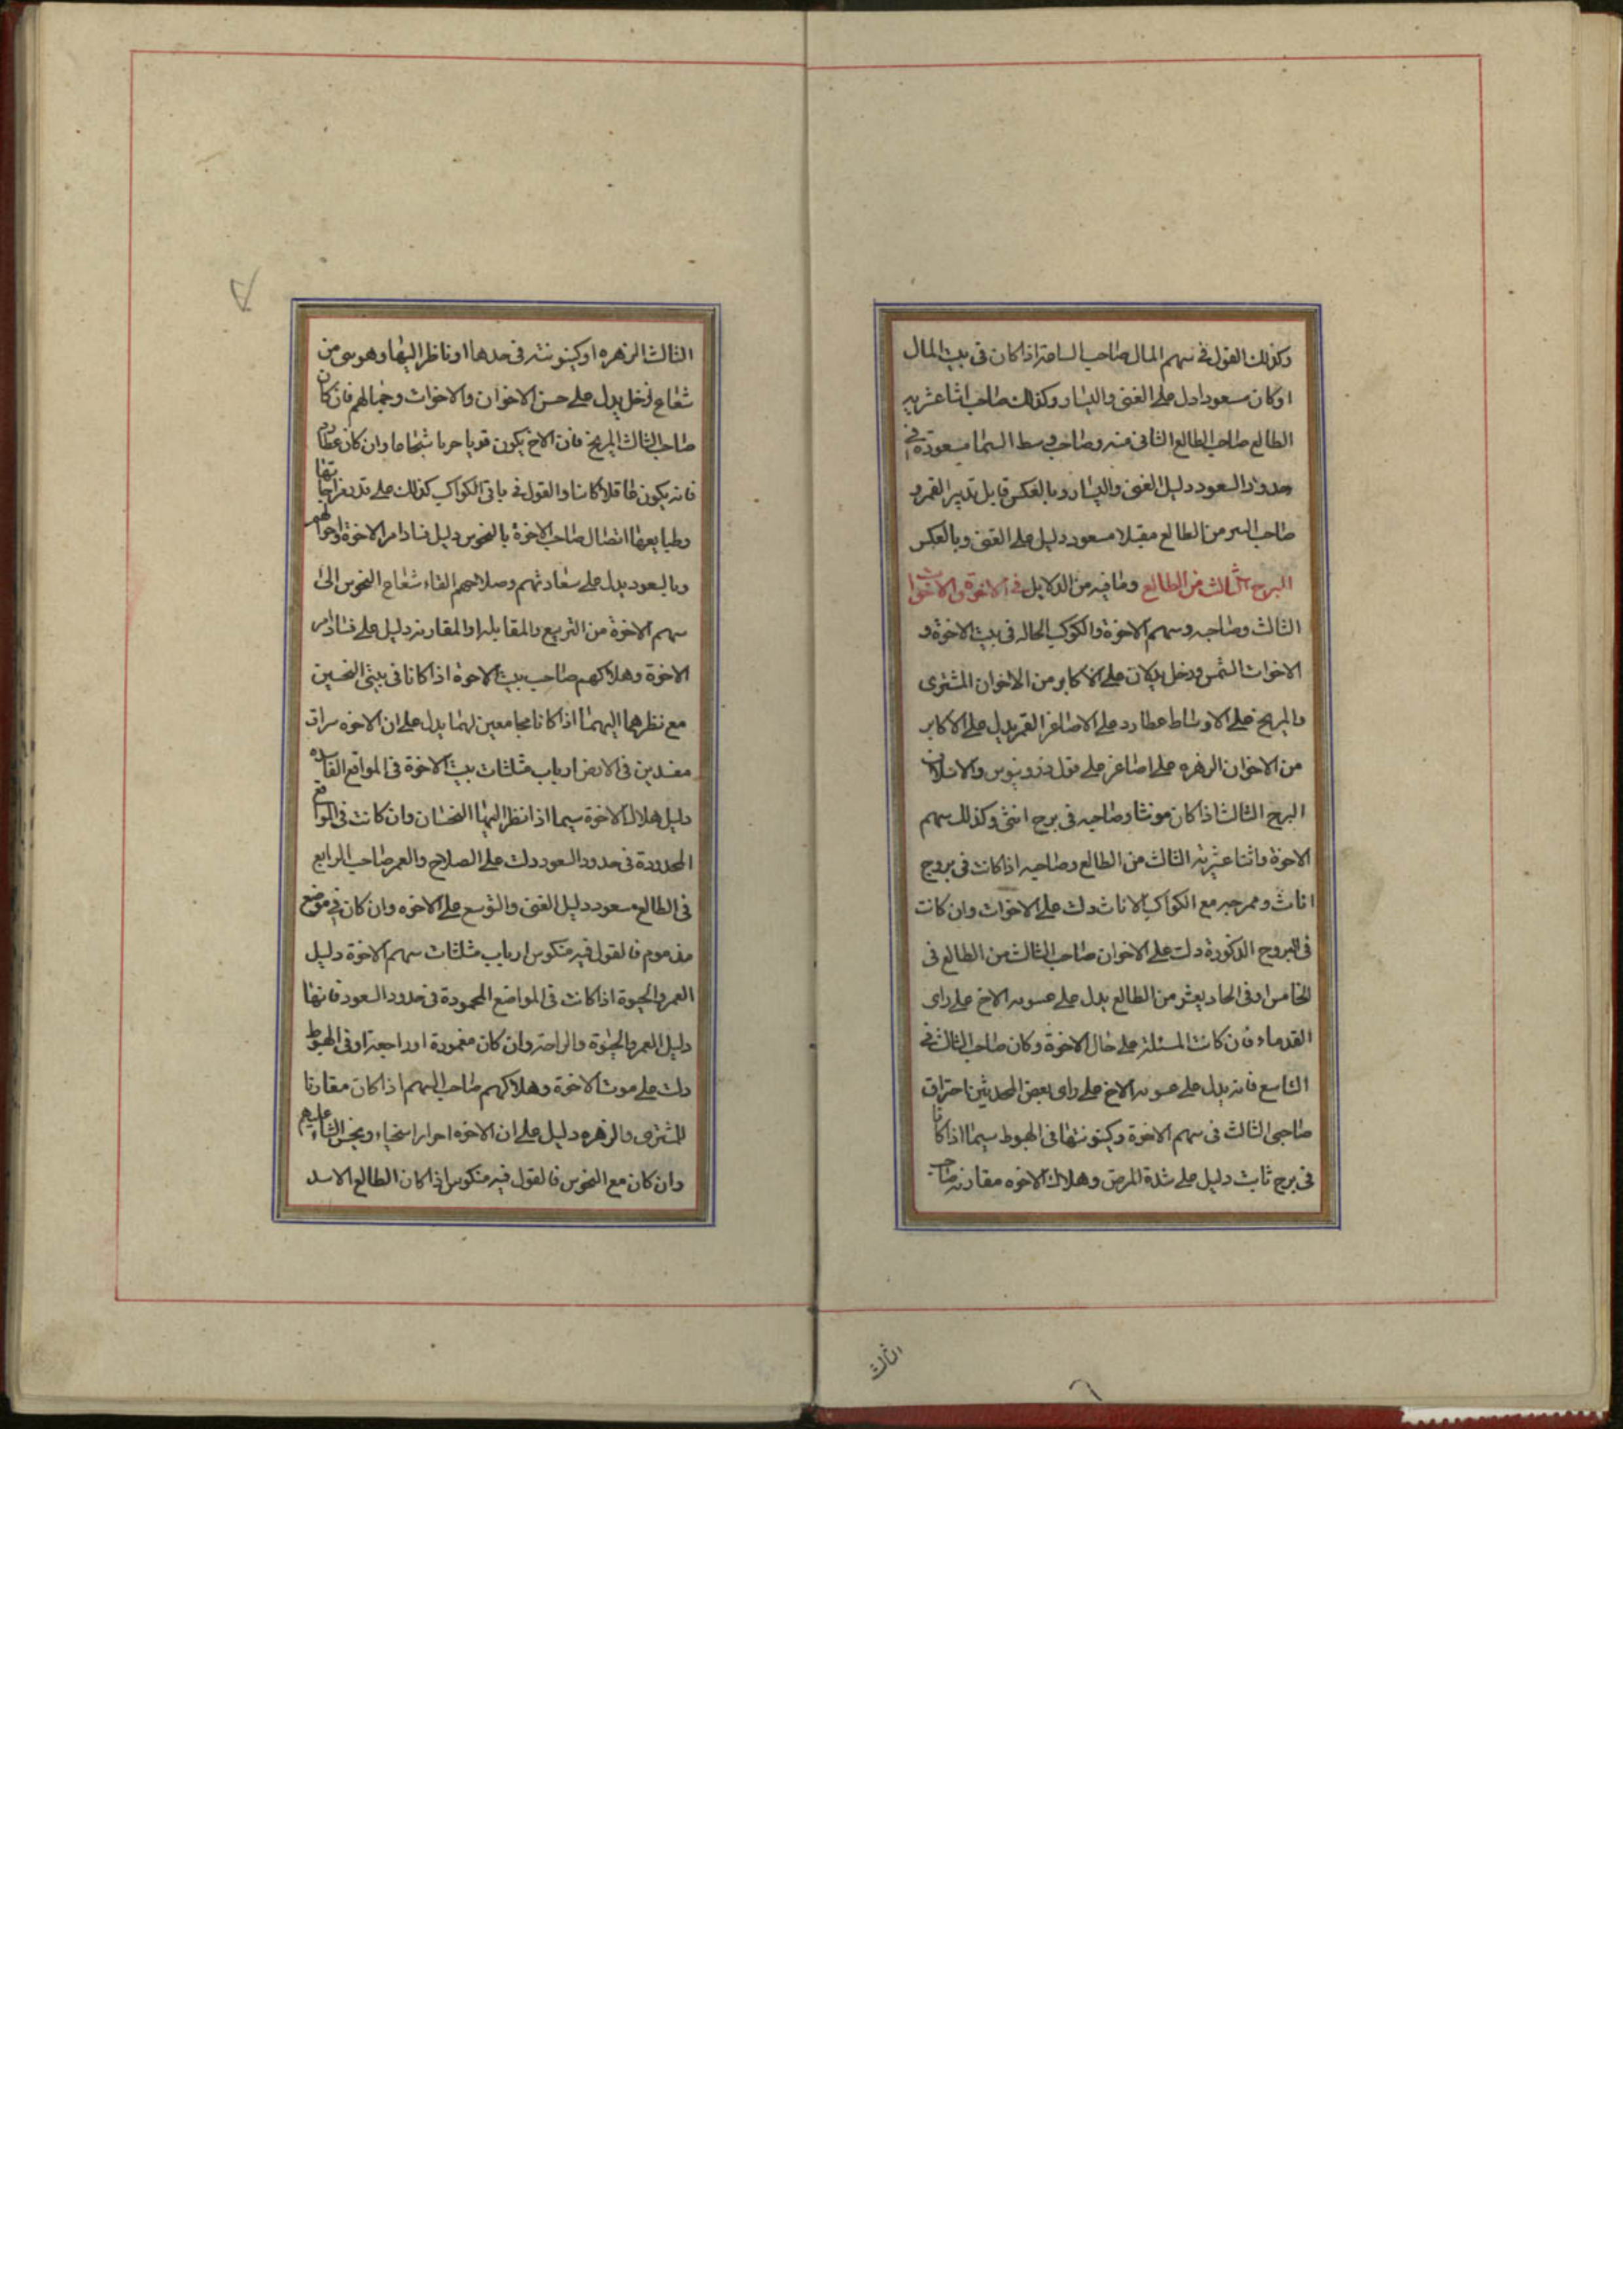 وكذلك القول في سهم المال صاحب الساعة اذا كان في بيت المال
او كان مسعودا دل على الغنى واليسار وكذلك صاحب اثنا عشريه
الطالع صاحب الطالع الثانى منه وصاحب وسط السما مسعودة في
حدود السعود دليل الغنى واليسار وبالعكس قابل تدبير القمر و
صاحب من الطالع مقبلا مسعود دليل على الغنى وبالعكس
البرج الثالث من الطالع وما فيه من الدلايل في الاخوة والاخوات
الثالث وصاحبه وسهم الاخوة والكوكب الحاله في بيت الاخوة و
الاخوات الشمس وزحل يدلان على الاكابر من الاخوان المشترى
والمريخ على الاوساط عطارد على الاصاغر القمر يدل على الاكابر
من الاخوان الزهره على اصاغر على قول
البرج الثالث اذا كان مونثا وصاحبه في برج انثى وكذلك سهم
الاخوة واثنا عشريه الثالث من الطالع وصاحبه اذا كانت في بروج
اناث مع الكواكب الاناث دلت على الاخوات وان كانت
في البروج الذكورة دلت على الاخوان صاحب الثالث من الطالع في
الخامس او في الحاديعشر من الطالع يدل على الاخ على راى
القدماء فان كانت المسئلة على حال الاخوة وكان صاحب الثالث في
التاسع فانه يدل على الاخ على راى بعض المحدثين احتراق
صاحبى الثالث في سهم الاخوة وكينونتها في الهبوط سيما اذا كانا
في برج ثابت دليل على شدة المرض وهلاك الاخوه مقارنه صاحب
الثالث
الثالث الزهره او كينونته في حدها او ناظر اليها وهو برى من
شعاع زحل يدل على حسن الاخوان والاخوات وجمالهم فان كان
صاحب الثالث المريخ فان الاخ يكون قويا حربا شجاعا وان كان عطارد
فانه يكون عاقلا كاتبا والقول في باقى الكواكب كذلك على قدر مزاجاتها
وطبايعها اتصال صاحب الاخوة بالنحوس دليل فساد امر الاخوة واحوالهم
وبالسعود يدل على سعادتهم وصلاحهم القاء شعاع النحوس الى
سهم الاخوة من التربيع والمقابله او المقارنه دليل على فساد امر
الاخوة وهلاكهم صاحب بيت الاخوة اذا كانا في بيتى النحسين
مع نظرهما اليهما اذا كانا مجامعين لهما يدل على ان الاخوه سراق
مفسدين في الارض ارباب مثلثات بيت الاخوة في المواقع الفاسده
دليل هلاك الاخوة سيما اذا نظر اليها النحسان وان كانت في المواقع
المحدودة في حدود السعود دلت على الصلاح والعمر صاحب الرابع
في الطالع مسعود دليل الغنى والتوسع على الاخوه وان كان في موضع
مذموم فالقول فيه منكوس ارباب مثلثات سهم الاخوة دليل
العمر والحيوة اذا كانت في المواضع المحمودة في حدود السعود فانها
دليل العمر والحيوة والراحة وان كان او راجعة او في الهبوط
دلت على موت الاخوة وهلاكهم صاحب السهم اذا كان مقارنا
للمشترى والزهره دليل على ان الاخوه احرار اسخياء الثناء عليهم
وان كان مع النحوس فالقول فيه منكوس اذا كان الطالع الاسد